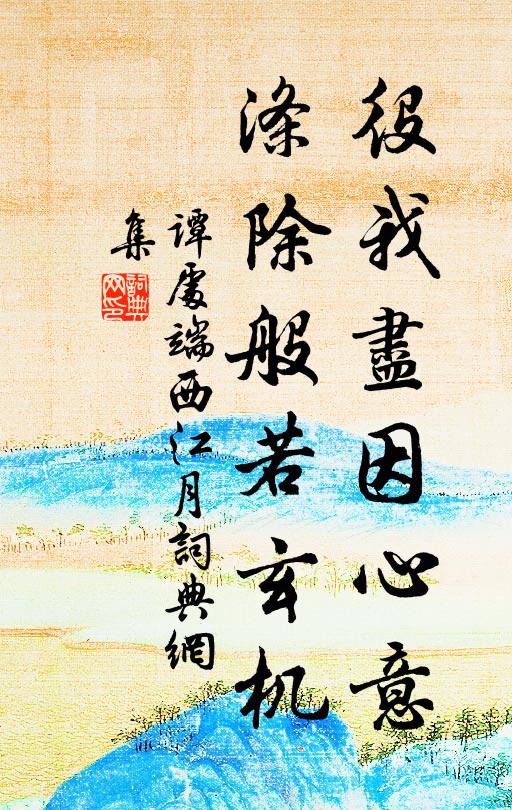 役我盡因心意
滌除般若玄机
譚處端西江月詞典網
集
詞典網印